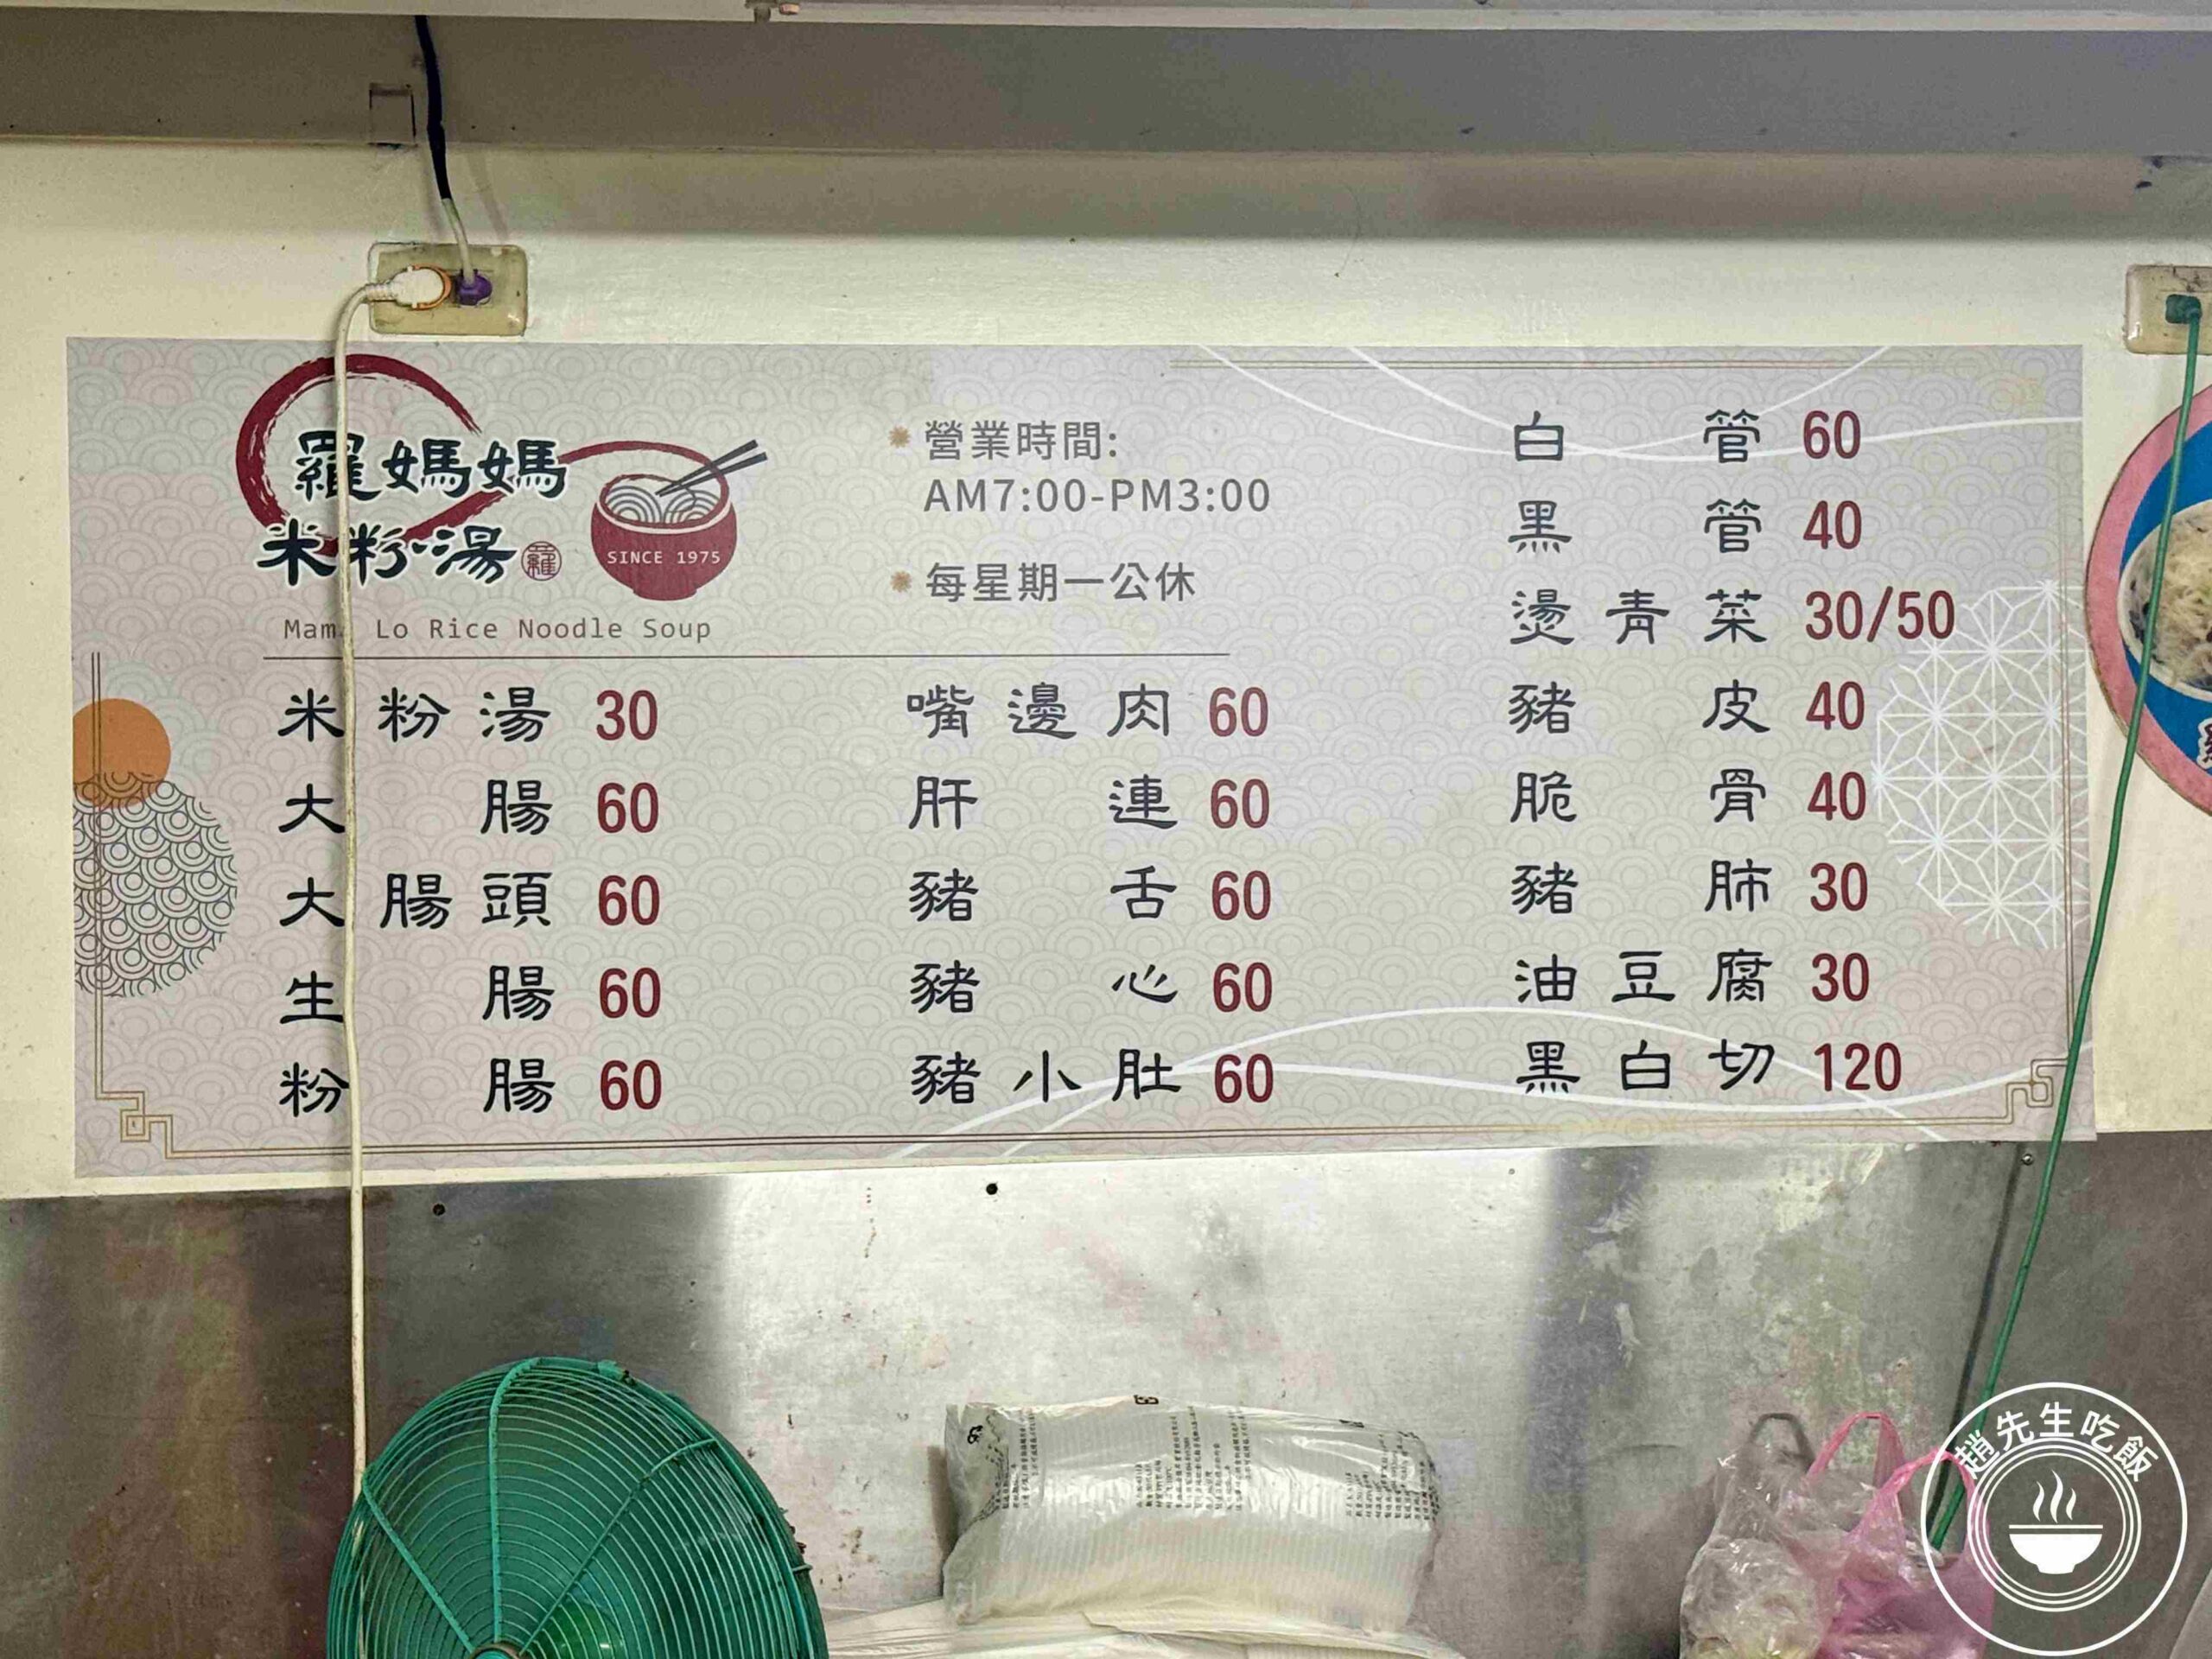 羅媽媽
米粉湯
羅
SINCE 1975
Lo Rice Noodle Soup
營業時間:
AM7:00-PM3:00
每星期一公休
米粉湯 30
大腸 60
大腸頭 60
生腸 60
粉腸 60
嘴邊肉 60
肝連 60
豬舌 60
豬心 60
豬小肚 60
白管 60
黑管 40
燙青菜 30/50
豬皮 40
脆骨 40
豬肺 30
油豆腐 30
黑白切 120
趙先生吃飯